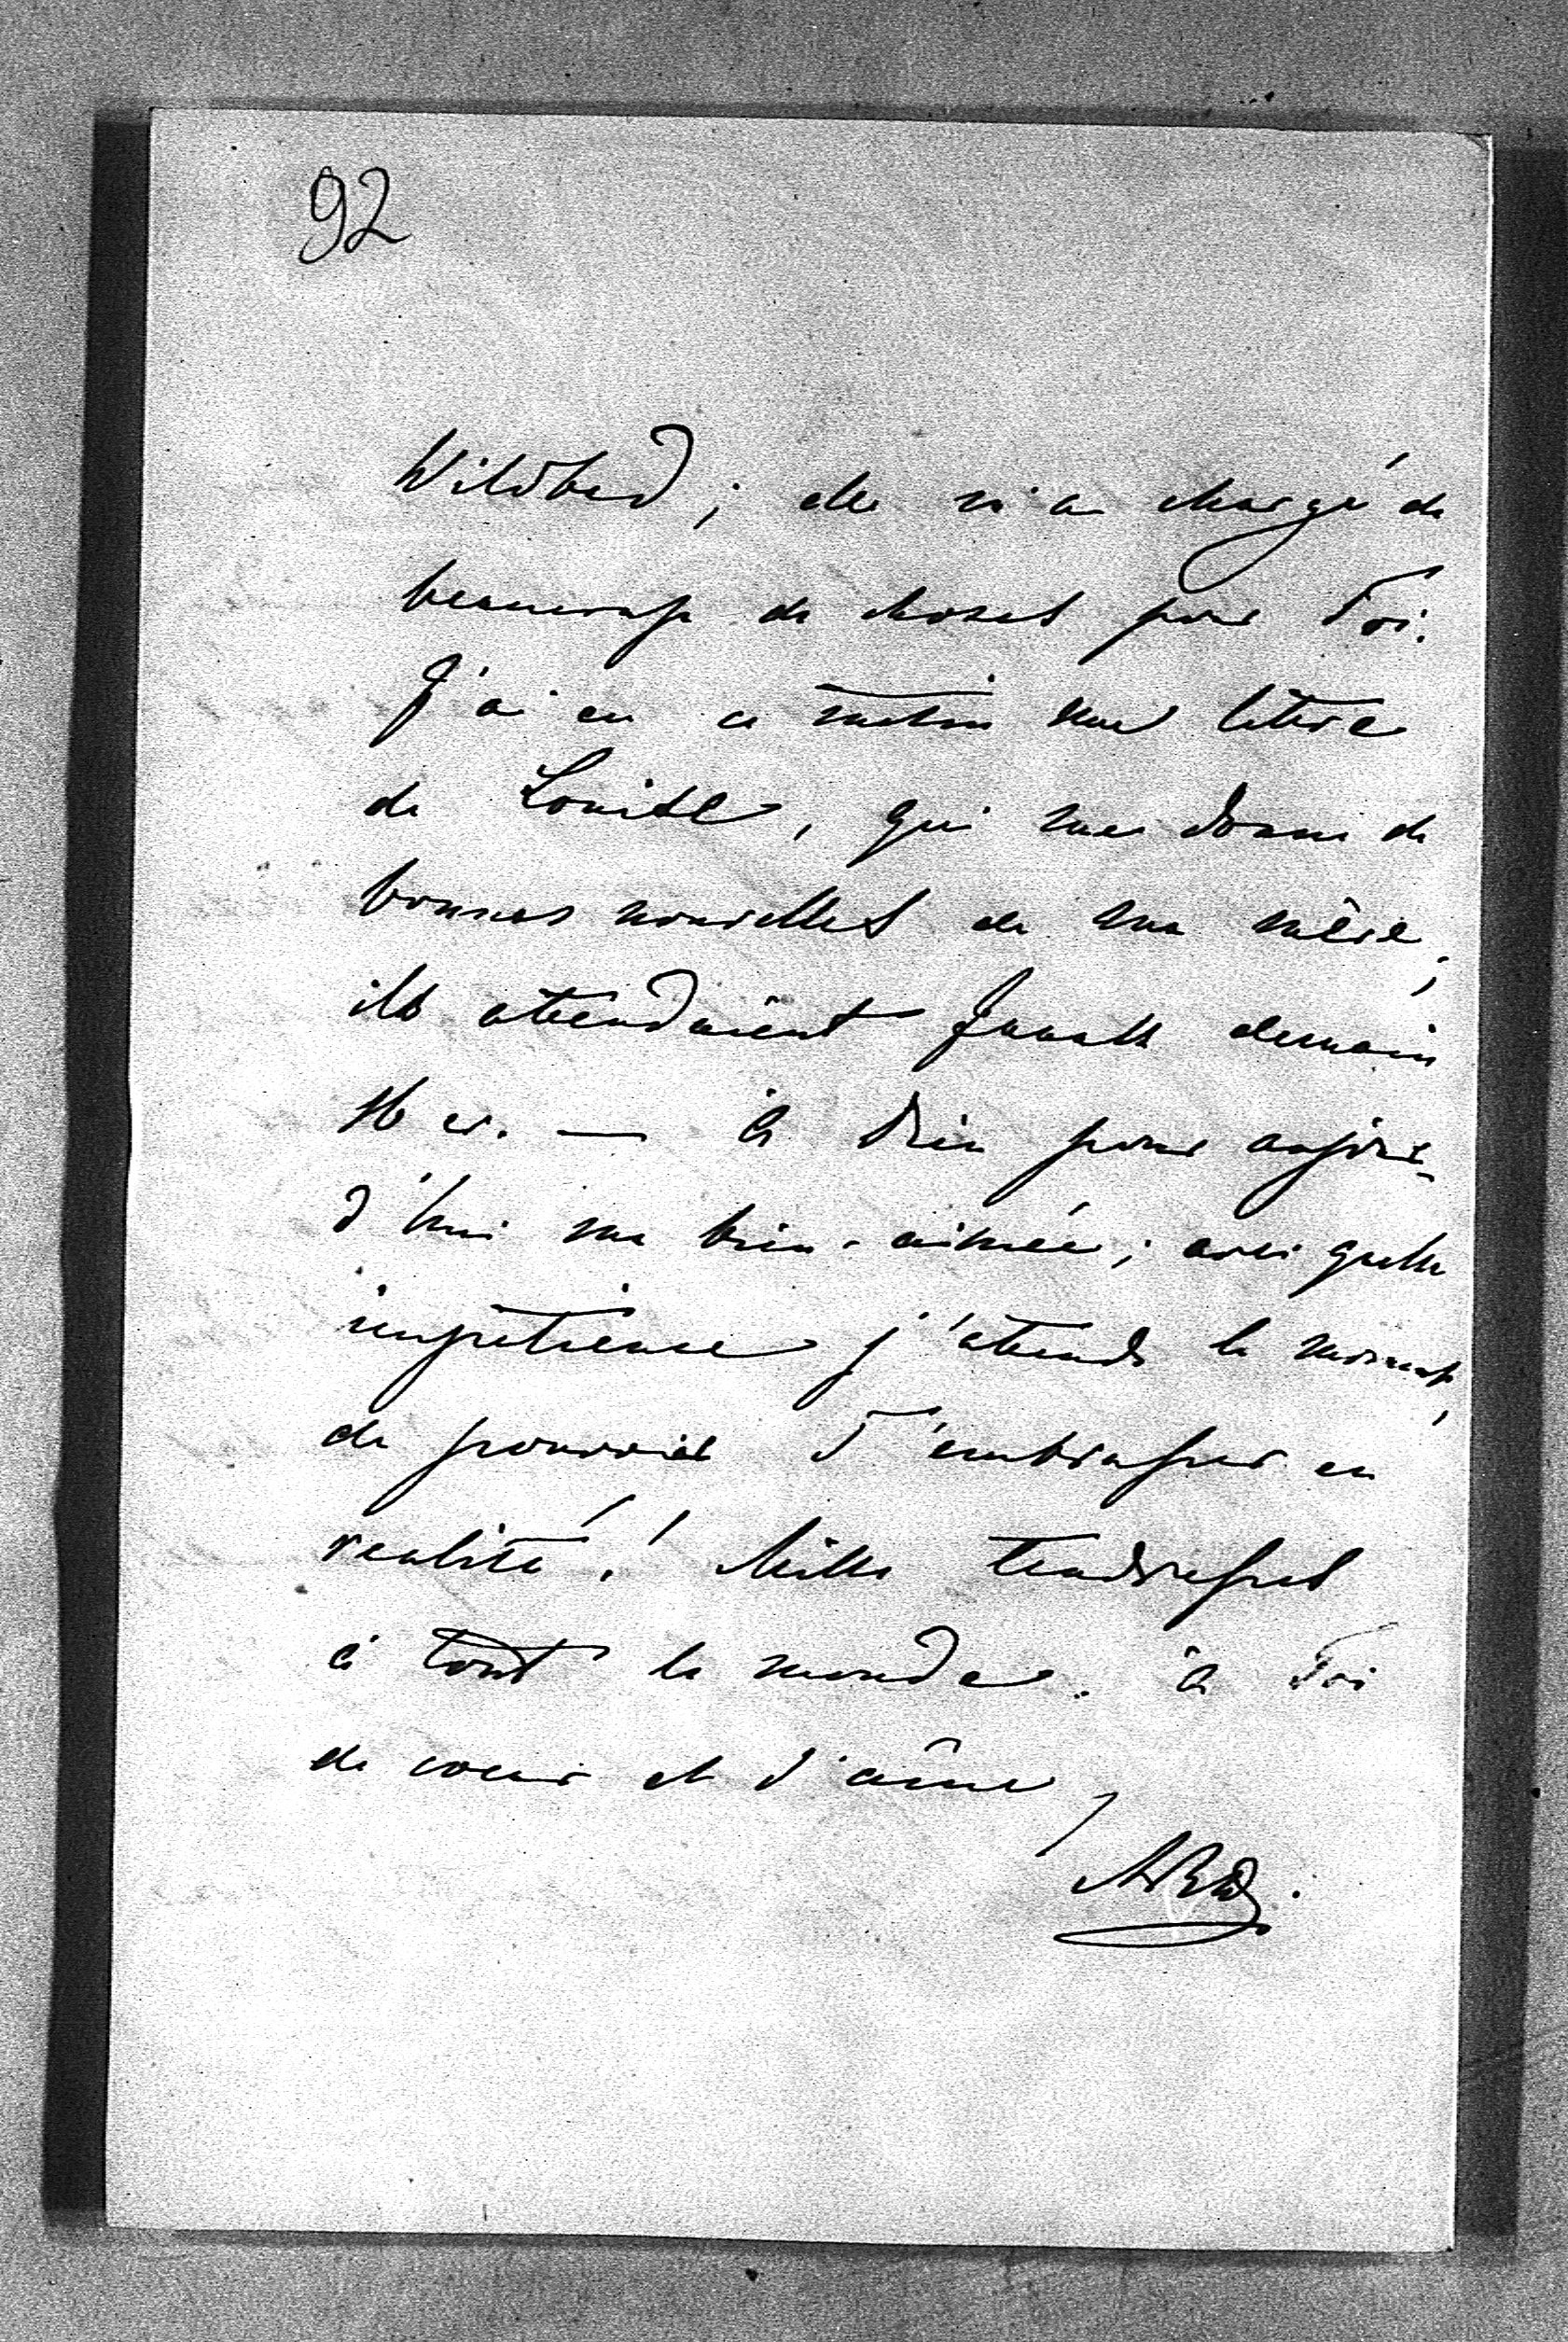 92
Wildbad; elle m'a chargé de
beaucoup de choses pour Toi.
J'ai eu ce matin une lettre
de Louise, qui me donne de
bonnes nouvelles de ma mère;
ils attendaient demain
16 cr. — à Dieu pour aujour-
d'hui ma bien-aimée; avec quelle
impatience j'attends le moment,
de pouvoir T'embrasser en
realité! Mille tendresses
à tout le monde. à Toi
de coeur et d'âme